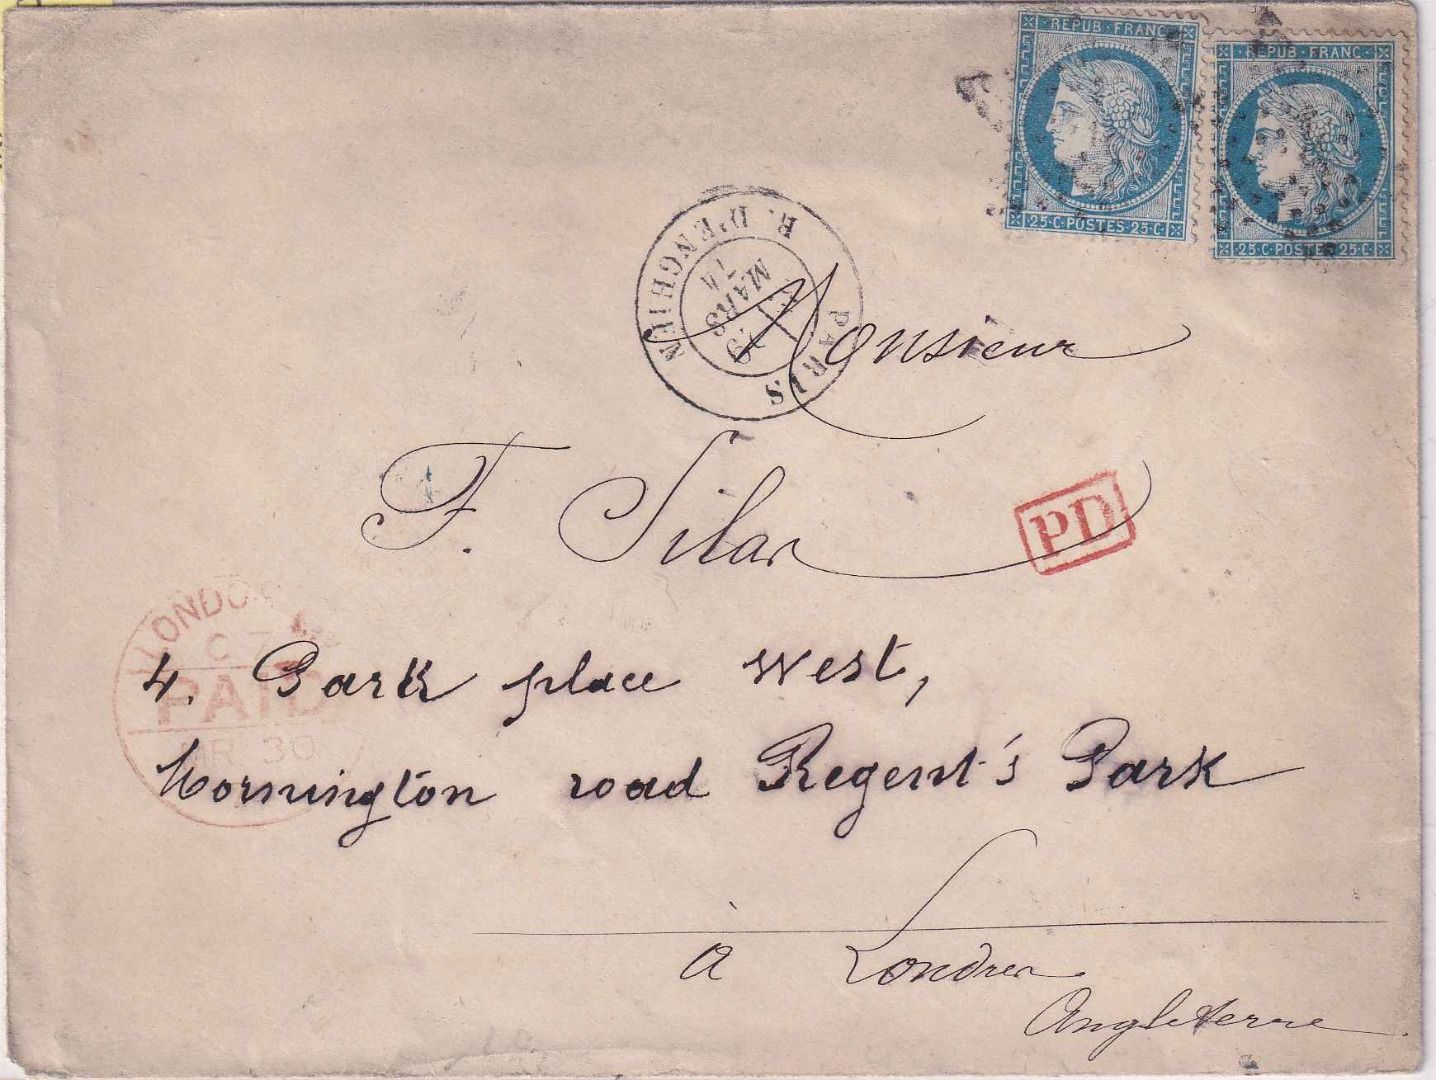 REPUB·FRANC
25·C·POSTES·25·C
REPUB·FRANC
25·C·POSTES·25·C
PARIS
R. D'ENGHIEN
29
MARS
74
Monsieur
F. Silas
PD
LONDON
C 74
PAID
MR 30
4. Park place West,
Mornington road Regent's Park
à Londres
Angleterre